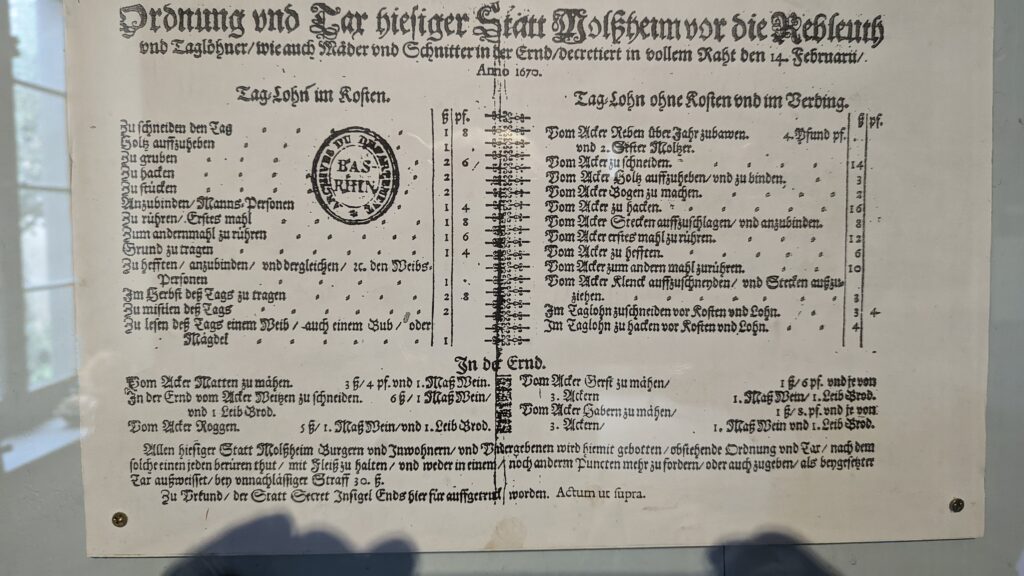 Ordnung vnd Tax hiesiger Statt Molßheim vor die Rebleuth
vnd Taglöhner/ wie auch Mäder vnd Schnitter in der Ernd/ decretiert in vollem Raht den 14. Februarii/
Anno 1670.
Tag-Lohn im Kosten.
ß pf.
Zu schneiden den Tag 1 8
Holtz auffzuheben 1
Zu gruben 2 6
Zu hacken 2
Zu stücken 2
Anzubinden/ Manns-Personen 1 4
Zu rühren/ Erstes mahl 1 8
Zum andernmahl zu rühren 1 6
Grund zu tragen 1 4
Zu hefften/ anzubinden/ vnd dergleichen/ ꝛc. den Weibs-
Personen 1
Im Herbst deß Tags zu tragen 2 8
Zu mistten deß Tags 2
Zu lesen deß Tags einem Weib/ auch einem Bub/ oder
Mägdel 1
ARCHIVES DU DEP
BAS-
RHIN
Tag-Lohn ohne Kosten vnd im Verding.
ß pf.
Vom Acker Reben über Jahr zubawen. 4. Pfund pf.
vnd 2. Moltzer.
Vom Acker zu schneiden. 14
Vom Acker Holtz auffzuheben/ vnd zu binden. 3
Vom Acker Bogen zu machen. 2
Vom Acker zu hacken. 16
Vom Acker Stecken auffzuschlagen/ vnd anzubinden. 8
Vom Acker erstes mahl zu rühren. 12
Vom Acker zu hefften. 6
Vom Acker zum andern mahl zurühren. 10
Vom Acker Klenck auffzuschneyden/ vnd Stecken außzu-
ziehen. 3
Im Taglohn zuschneiden vor Kosten vnd Lohn. 3 4
Im Taglohn zu hacken vor Kosten vnd Lohn. 4
In der Ernd.
Vom Acker Matten zu mähen. 3 ß/ 4 pf. vnd 1. Maß Wein.
In der Ernd vom Acker Weitzen zu schneiden. 6 ß/ 1 Maß Wein/
vnd 1 Leib Brod.
Vom Acker Roggen. 5 ß/ 1. Maß Wein vnd 1. Leib Brod.
Vom Acker Gerst zu mähen/ 1 ß/ 6 pf. vnd je von
3. Ackern 1. Maß Wein/ 1. Leib Brod.
Vom Acker Habern zu mähen/ 1 ß/ 8. pf. vnd je von
3. Ackern/ 1. Maß Wein vnd 1. Leib Brod.
Allen hiesiger Statt Molßheim Burgern vnd Inwohnern/ vnd Vntergebenen wird hiemit gebotten/ obstehende Ordnung vnd Tax/ nach dem
solche einen jeden berüren thut/ mit Fleiß zu halten/ vnd weder in einem/ noch anderm Puncten mehr zu fordern/ oder auch zugeben/ als beygesetzter
Tax außweisset/ bey vnnachlässiger Straff 30. ß.
Zu Vrkund/ der Statt Secret Insigel Ends hier für auffgetruckt worden. Actum ut supra.